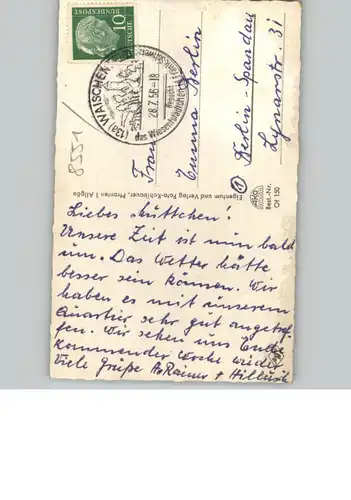 10
DEUTSCHE
BUNDESPOST
(13a) WAISCHEN
28.7.56-18
Besucht
8551
Frau
Emma Berlin
Berlin-Spandau
Lynarstr. 31
Eigentum und Verlag Foto-Kohlbauer, Pfronten i. Allgäu
Best.-Nr.
Of 150
Liebes Muttchen!
Unsere Zeit ist nun bald
um. Das Wetter hätte
besser sein können. Wir
haben es mit unserem
Quartier sehr gut angetrof-
fen. Wir sehen uns Ende
kommender Woche wieder
Viele Grüße Rainer +